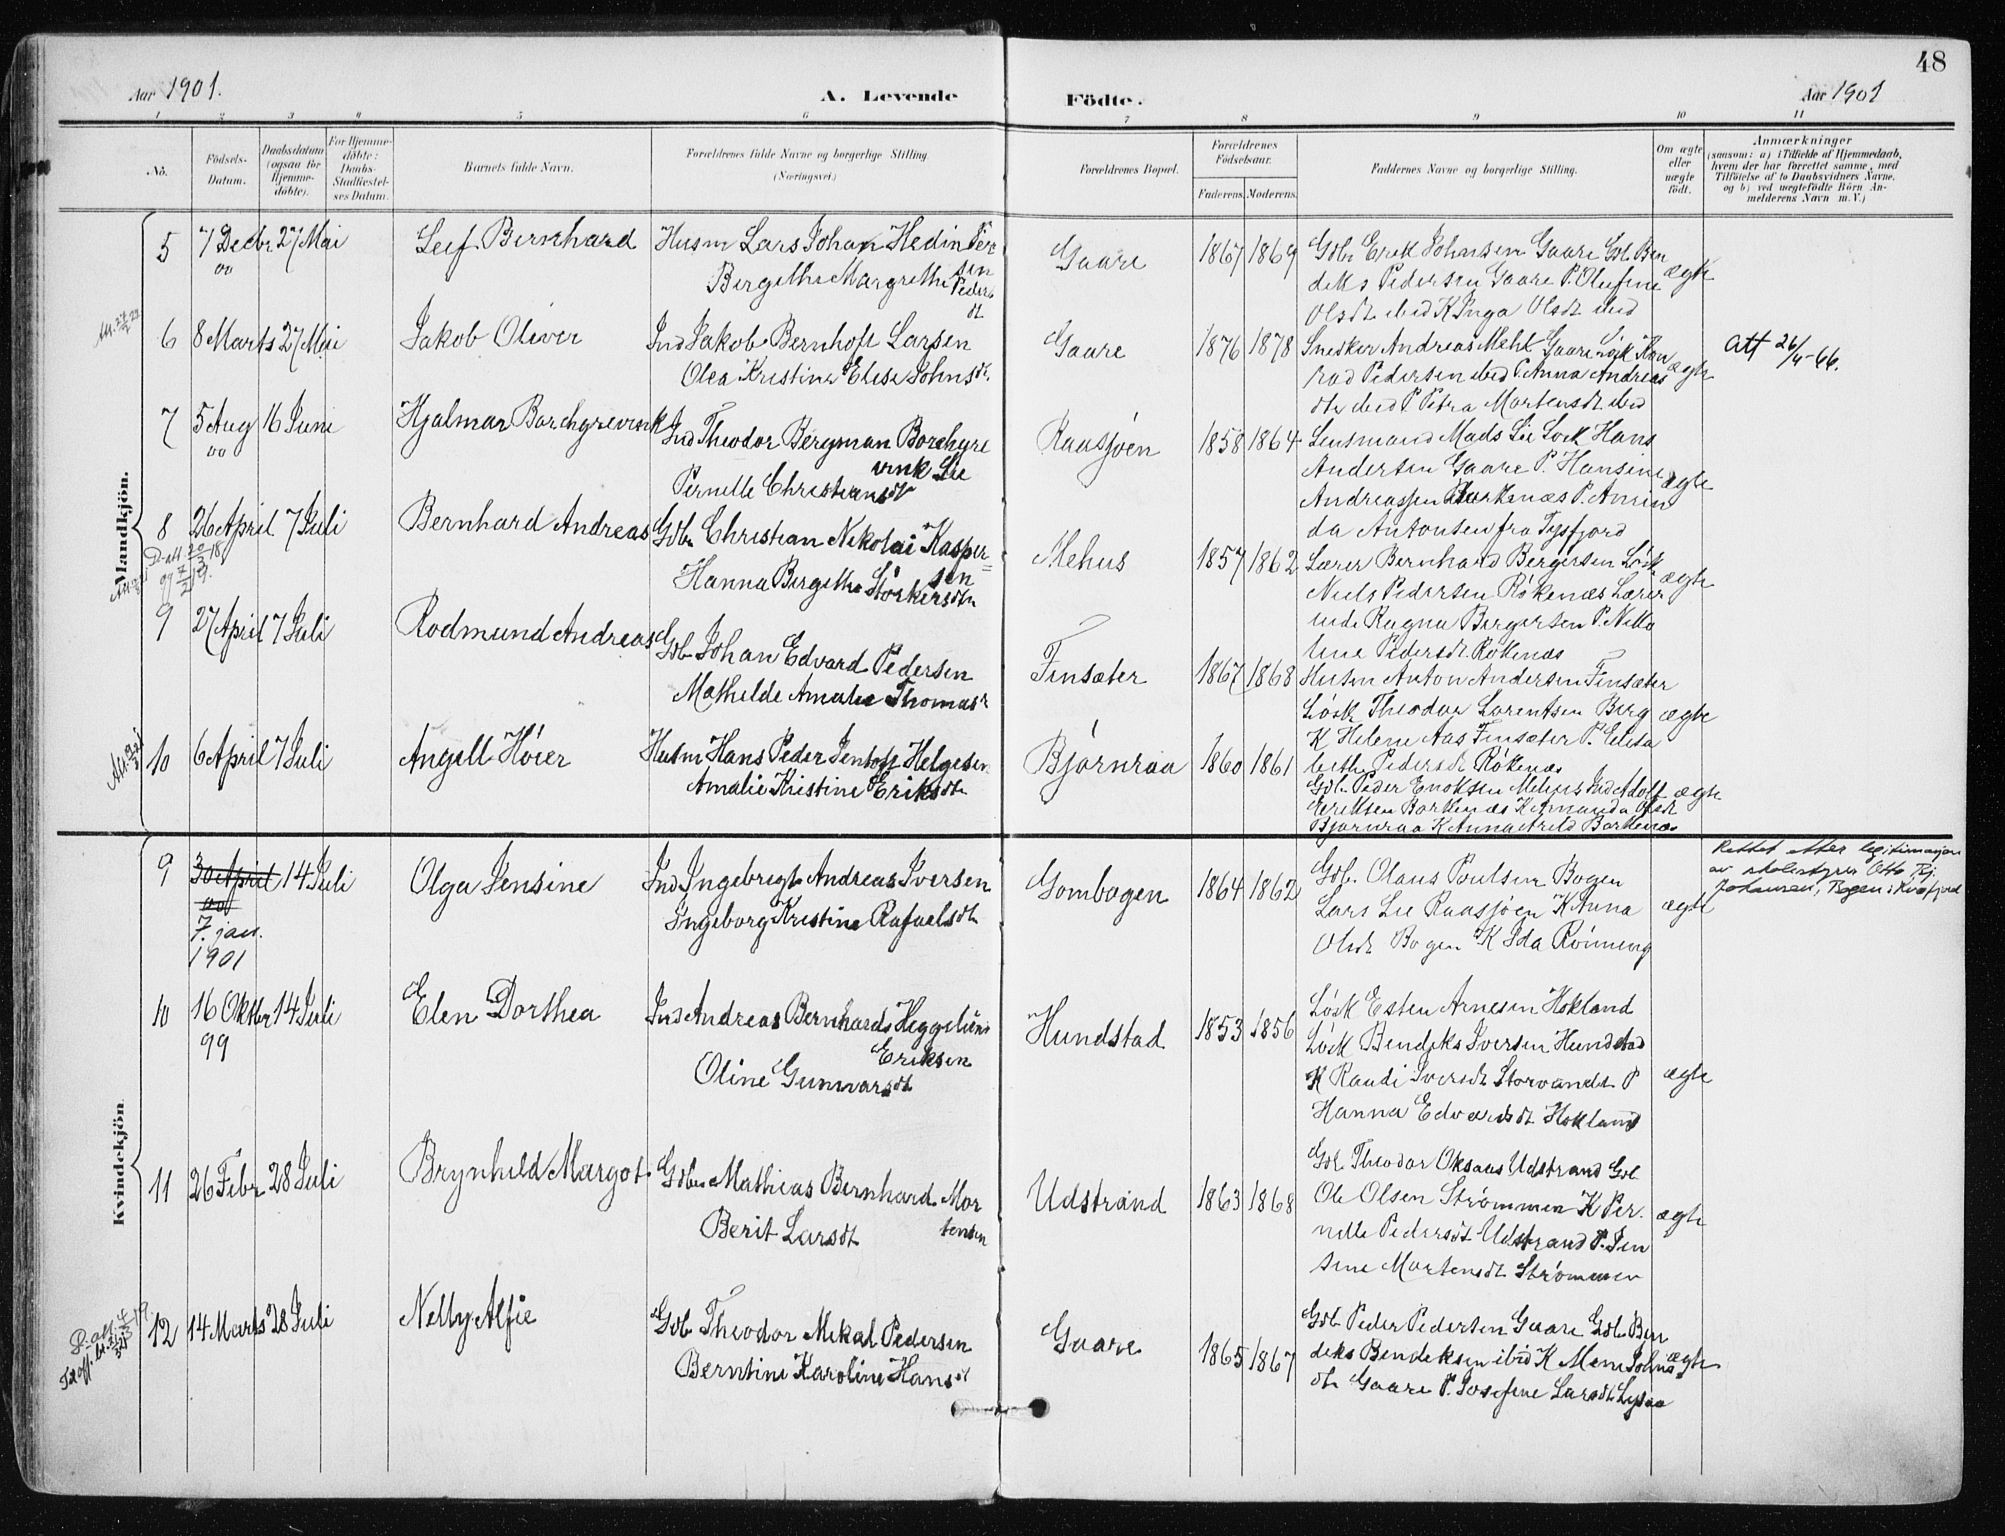 48
Aar 1901. A. Levende Födte. Aar 1901
1 2 3 4 5 6 7 8 9 10 11
No.
Födsels-
Datum.
Daabsdatum
(ogsaa for
Hjemme-
döbte).
For Hjemme-
döbte:
Daabs-
Stadfæstel-
ses Datum.
Barnets fulde Navn.
Forældrenes fulde Navne og borgerlige Stilling
(Næringsvei.)
Forældrenes Bopæl.
Forældrenes
Födselsaar.
Faderens. Moderens.
Faddernes Navne og borgerlige Stilling.
Om ægte
eller
uægte
födt.
Anmærkninger
(saasom: a) i Tilfælde af Hjemmedaab,
hvem der har forrettet samme, med
Tilföielse af to Daabsvidners Navne.
og b) ved uægtefödte Börn An-
melderens Navn m. V.)
Mandkjön.
5 7 Decbr 27 Mai Leif Bernhard Husm Lars Johan Hedin Peer
00 sen
Bergithe Margrethe Peders
dt
Gaare 1867 1869 Gdb. Erik Johnsen Gaare Gdb Ben
deks Pedersen Gaare P. Olufine ægte
Olsdt ibid K Inga Olsdt ibid
6 8 Marts 27 Mai Jakob Oliver Ind Jakob Bernhoft Larsen
Olea Kristine Elise Johnsdt.
Gaare 1876 1878 Snekker Andreas Mehl Gaare Løsk Kon
rad Pedersen ibid P. Anna Andreas ægte
dtr ibid P Petra Mortensdt ibid
Att 26/4-66.
7 5 Aug 16 Juni Hjalmar Borchgrevink Ind Theodor Bergman Borchgre
00 vink Lie
Pernelle Christiansdt
Raasjøen 1858 1864 Lensmand Mads Lie Løsk Hans
Andersen Gaare P. Hansine ægte
Andreassen Borkenæs P. Anrin
da Antonsen fra Tysfjord
8 26 April 7 Juli Bernhard Andreas Gdbr Christian Nikolai Kasper=
sen
Hanna Bergitha Størkersdtr
Mehus 1857 1862 Lærer Bernhard Bergersen Løsk
Niels Pedersen Røkenæs Lærer ægte
inde Ragna Bergersen P. Niko
line Pedersdt Røkenæs
9 27 April 7 Juli Rodmund Andreas Gdb Johan Edvard Pedersen
Mathilde Amalie Thomasd
Finsæter 1867 1868 Husm Anton Andersen Finsæter
Løsk Theodor Lorentsen Berg ægte
K Helene Aas Finsæter P. Elisa
beth Pedersdt Røkenæs
10 6 April 7 Juli Angell Høier Husm Hans Peder Jentoft Helgesen
Amalie Kristine Eriksdt
Bjørnraa 1860 1861 Gdb. Peder Enoksen Mehus Ind Adolf ægte
Eriksen Borkenæs K Amanda Olsdt
Bjørnraa K Anna Arild Borkenæs
Kvindekjön
9 30 April 14 Juli Olga Jensine Ind Ingebrigt Andreas Iversen
00
7. jan.
1901
Ingeborg Kristine Rafaelsdt
Gombogen 1864 1862 Gdb. Olaus Poulsen Bogen
Lars Lie Raasjøen K Anna ægte
Olsdt Bogen K Ida Rønning
Rettet etter legitimasjon
av skolestyrer Otto Bj.
Johansen, Bogen i Kvæfjord
10 16 Oktbr 14 Juli Elen Dorthea Ind Andreas Bernhards Heggelund
99 Eriksen
Oline Gunnarsdt
Hundstad 1853 1856 Løsk Esten Arnesen Hokland
Løsk Bendiks Iversen Hundstad
K Randi Iversdt Storvandt P ægte
Hanna Edvardsdt Hokland
11 26 Febr 28 Juli Brynhild Margot Gdbr Mathias Bernhard Mor
tensen
Berit Larsdt
Udstrand 1863 1868 Gdb Theodor Oksaas Udstrand Gdb
Ole Olsen Strømmen K Per. ægte
nelle Pedersdt Udstrand P. Jen
sine Mortensdt Strømmen
12 14 Marts 28 Juli Nelly Alfie Gdb Theodor Mikal Pedersen
Berntine Karoline Hansd
Gaare 1865 1867 Gdb Peder Pedersen Gaare Gdb. Ben
deks Bendeksen ibid K Mene Johns ægte
dtr Gaare P. Josefine Larsdt